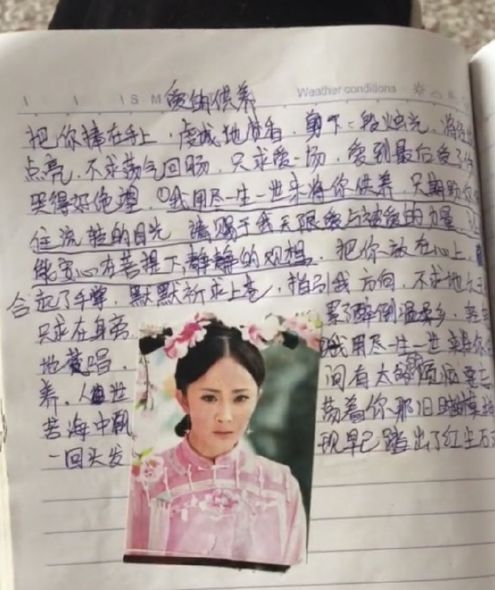 S M
Weather conditions
爱的供养
把你捧在手上，虔诚地焚香，剪下一段烛光，将
点亮，不求荡气回肠，只求爱一场，爱到最后受了
哭得好绝望，我用尽一生一世来将你供养，只期盼你
住流转的目光，请赐予我无限爱与被爱的力量，
能安心在菩提下静静的观想。把你放在心上，
合起了手掌，默默祈求上苍，指引我方向，不求地久
只求在身旁 累了醉倒温柔乡，
地黄唱， 我用尽一生一世来将你
养，人世 间有太多烦恼要忘
苦海中飘 荡着你那旧时
一回头发 现早已踏出了红尘万